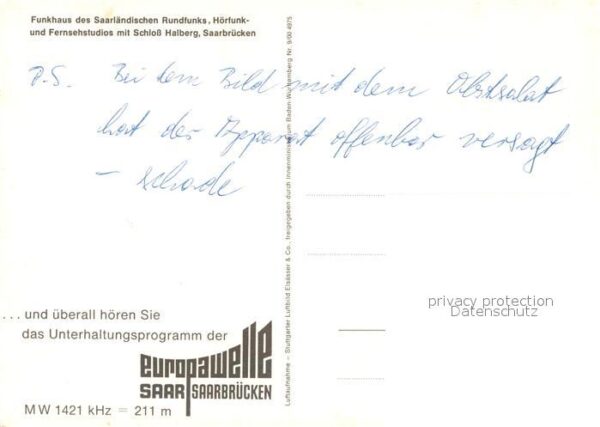 Funkhaus des Saarländischen Rundfunks, Hörfunk-
und Fernsehstudios mit Schloß Halberg, Saarbrücken
P.S. Bei dem Bild mit dem Obstsalat
hat der Apparat offenbar versagt
– schade
Luftaufnahme – Stuttgarter Luftbild Elsässer & Co., freigegeben durch Innenministerium Baden-Württemberg Nr. 9/00 4975
privacy protection
Datenschutz
... und überall hören Sie
das Unterhaltungsprogramm der
europawelle
SAAR SAARBRÜCKEN
MW 1421 kHz = 211 m